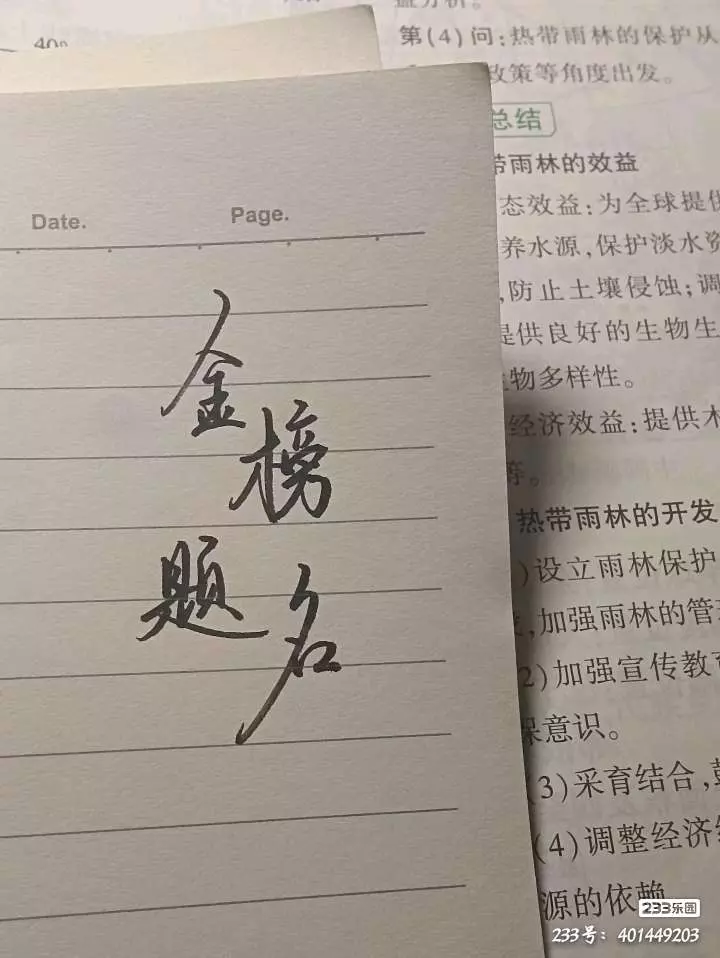 40
益分析。
第(4)问:热带雨林的保护从
政策等角度出发。
总结
带雨林的效益
态效益:为全球提供
养水源,保护淡水资
,防止土壤侵蚀;调
提供良好的生物生
物多样性。
经济效益:提供木
等。
热带雨林的开发
)设立雨林保护
,加强雨林的管理
2)加强宣传教育
保意识。
(3)采育结合,
(4)调整经济结
源的依赖
Date.
Page.
金
榜
题
名
233乐园
233号:401449203